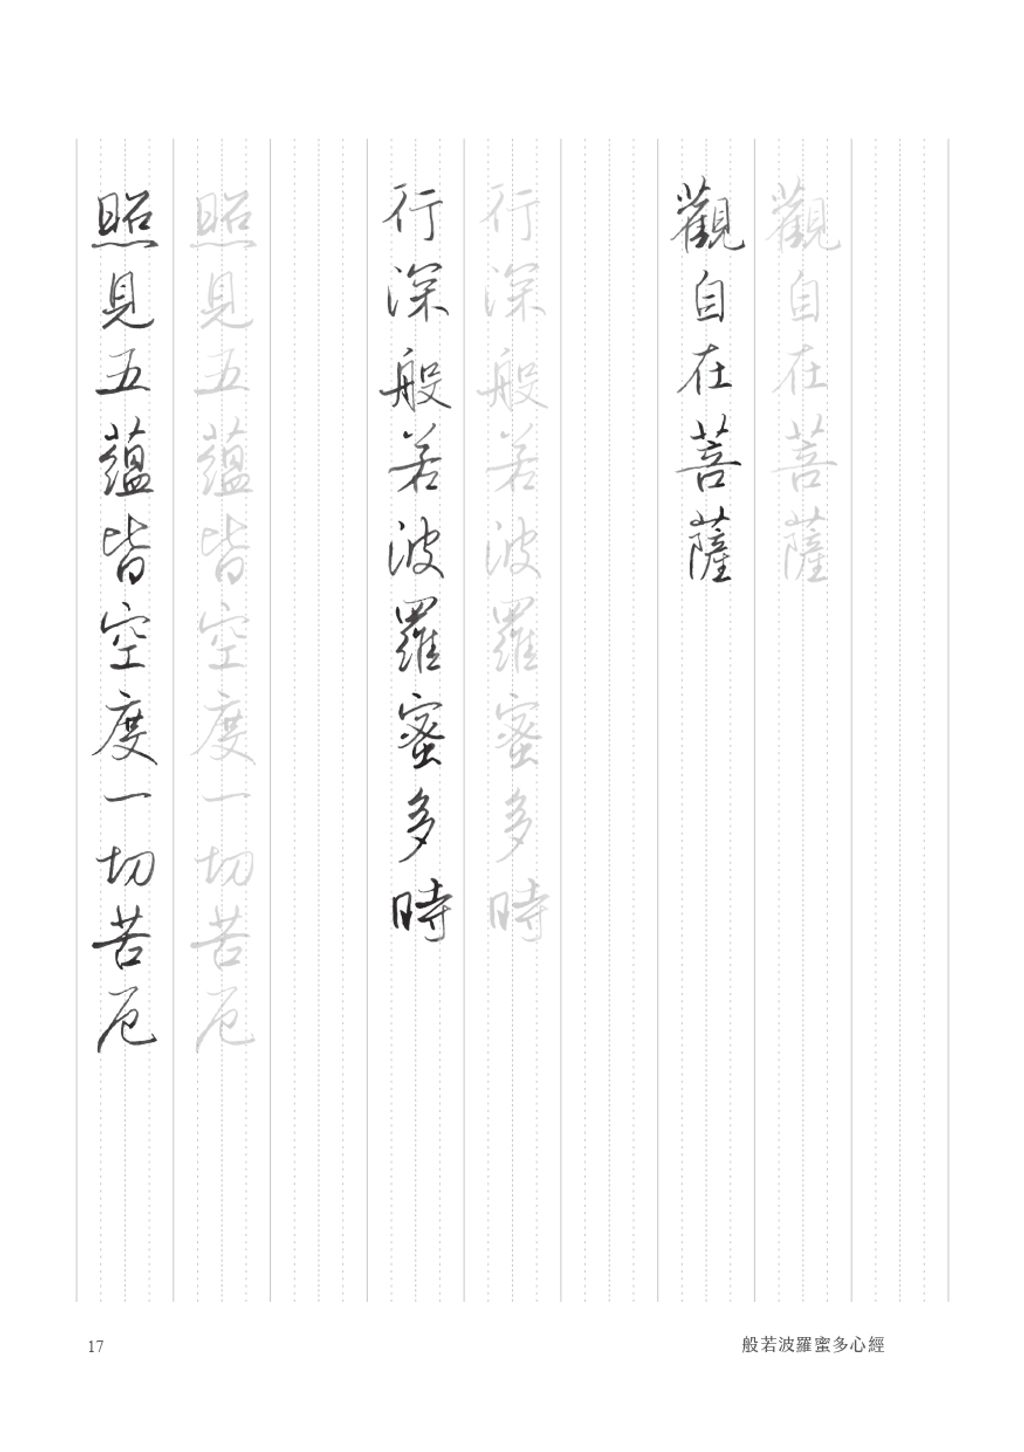 觀自在菩薩
觀自在菩薩
行深般若波羅蜜多時
行深般若波羅蜜多時
照見五蘊皆空度一切苦厄
照見五蘊皆空度一切苦厄
17
般若波羅蜜多心經